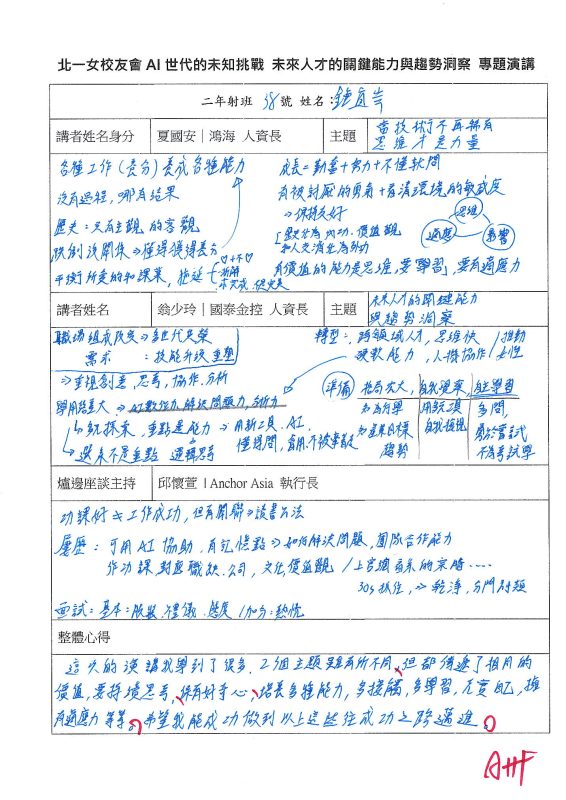 北一女校友會 AI 世代的未知挑戰 未來人才的關鍵能力與趨勢洞察 專題演講
二年射班 38號 姓名：鍾宜芸
講者姓名身分 夏國安｜鴻海 人資長 主題 當技術不再稀有 思維才是力量
各種工作(養分)養成各種能力
沒有過程，哪有結果
歷史：只有主觀的客觀
跌倒沒關係⇒懂得獲得養分
平衡所愛的和課業，拖延
成長＝勤奮＋努力＋不懂就問
有被討厭的勇氣＋看清環境的敏感度
⇒保持友好
思維
適應
學習
有價值的能力是思維，要學習，要有適應力
講者姓名 翁少玲｜國泰金控 人資長 主題 未來人才的關鍵能力與趨勢洞察
職場組成改變⇒多世代共榮
需求：技能升級重塑
⇒重視創意，思考，協作，分析
轉型：跨領域人才，思維快
硬軟能力，人機協作
推動
女性
⇒AI數位力，解決問題力，分析力
多玩探索，重點是能力⇒用新工具，AI，
選系不是重點 邏輯思考
準備
格局放大，
自我覺察，
自主學習
趨勢
用該工具
自我檢視
多問，
勇於嘗試
不為考試學
爐邊座談主持 邱懷萱｜Anchor Asia 執行長
功課好≠工作成功，但有關聯⇒讀書方法
履歷：可用AI協助，有記憶點⇒如何解決問題，團隊合作能力
作功課，對應職缺，公司，文化，價值觀
30s抓住，⇒乾淨，分門別類
面試：基本：服裝，禮儀，態度／加分：熱忱
整體心得
這次的演講我學到了很多，2個主題雖有所不同，但都傳遞了相同的
價值，要持續思考，保有好奇心，培養多種能力，多接觸，多學習，充實自己，擁
有適應力等等。希望我能成功做到以上這些往成功之路邁進。
A++